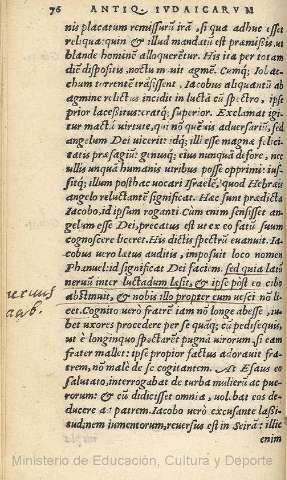 76 ANTIQ. IVDAICARVM
nis placatum remissurũ irã, si qua adhuc esset
reliqua: quin & illud mandatũ est præmissis, ut
blande hominē alloquerētur. His ita per totam
diē dispositis, noctu mouit agmē. Cumq; Iobac-
chum torrentē trãsissent, Iacobus aliquantũ ab
agmine relictus incidit in luctã cũ spectro, ipse
prior lacessitus: eratq; superior. Exclamat igi-
tur macta uirtute, qui nō quēuis aduersariũ, sed
angelum Dei uicerit: idq; illi esse magnæ felici-
tatis præsagiũ: genusq; eius nunquã defore, nec
ullis unquã humanis uiribus posse opprimi: ius-
sitq; illum posthac uocari Israelē, quod Hebræis
angelo reluctantē significat. Hæc sunt prædicta
Iacobo, id ipsum roganti. Cũm enim sensisset an-
gelum esse Dei, precatus est ut ex eo fatũ suum
cognoscere liceret. His dictis spectrũ euanuit. Ia-
cobus uero lætus auditis, imposuit loco nomen
Phanuel: id significat Dei faciem. sed quia latũ
neruũ inter luctadum lesit, & ipse post eo cibo
abstinuit, & nobis illo propter eum uesci nō li-
cet. Cognito uerò fratrē iam nō longe abesse, iu-
bet uxores procedere per se quãq; cũ pedisequis,
ut è longinquo spectarēt pugnã uirorum, si eam
frater mallet: ipse propior factus adorauit fra-
trem, nō male de se cogitantem. At Esaus eo
salutato, interrogabat de turba mulierũ ac pue-
rorum: & cũ didicisset omnia, uolebat eos de-
ducere ad patrem. Iacobo uerò excusante lassi-
tudinem iumentorum, reuersus est in Seirã: illic
enim
Ministerio de Educación, Cultura y Deporte